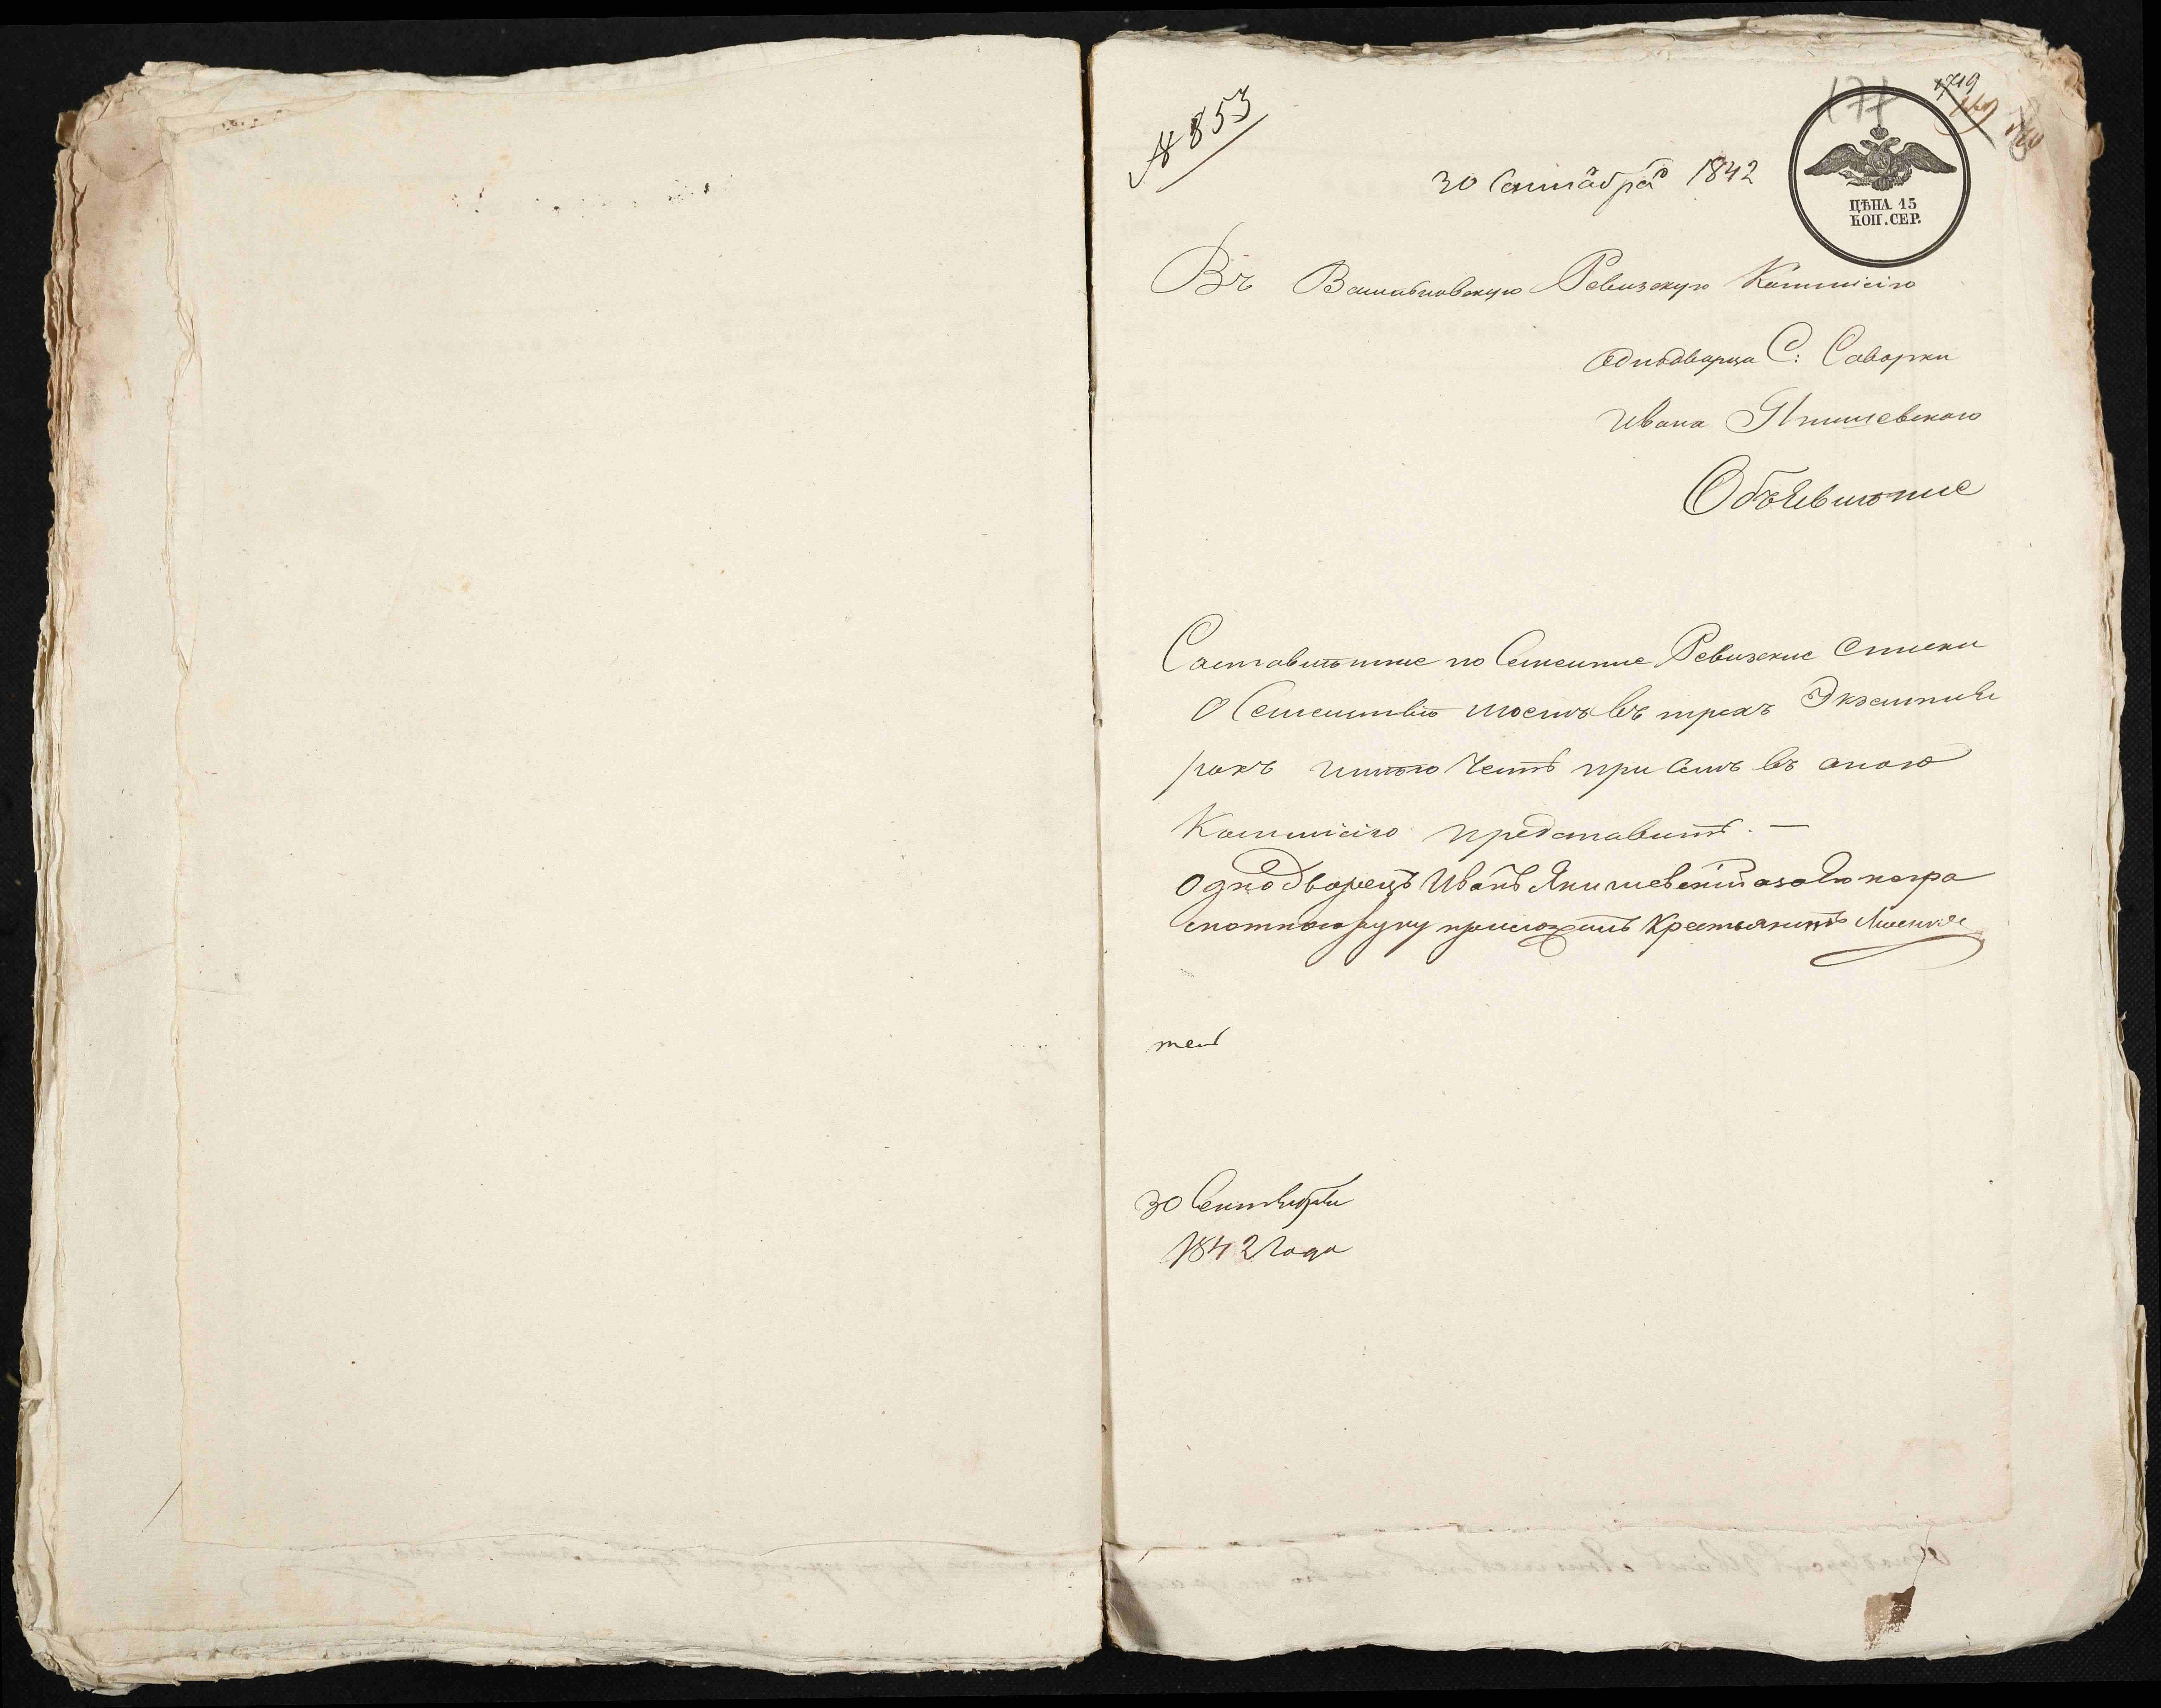 № 853
171
1719
30 Сентября 1842
ЦѢНА 15
КОП. СЕР.
Въ Васильковскую Ревизскую Коммисію
Однодворца С: Саворки
Ивана Янишевского
Объявление
Составленные по Семейные Ревизские Списки
О Семействе моемъ въ трехъ Экземпля
рахъ имею честь при семъ въ оную
Коммисію представить. —
Однодворецъ Иванъ Янишевскій а за Его негра
мотного руку приложилъ Крестьянинъ
30 Сентября
1842 Года